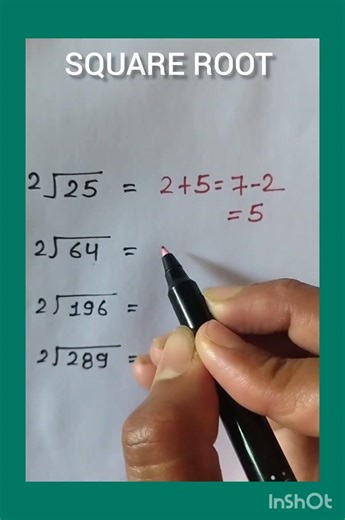 SQUARE ROOT
2√25 = 2+5=7-2
=5
2√64 =
2√196 =
2√289 =
InShOt